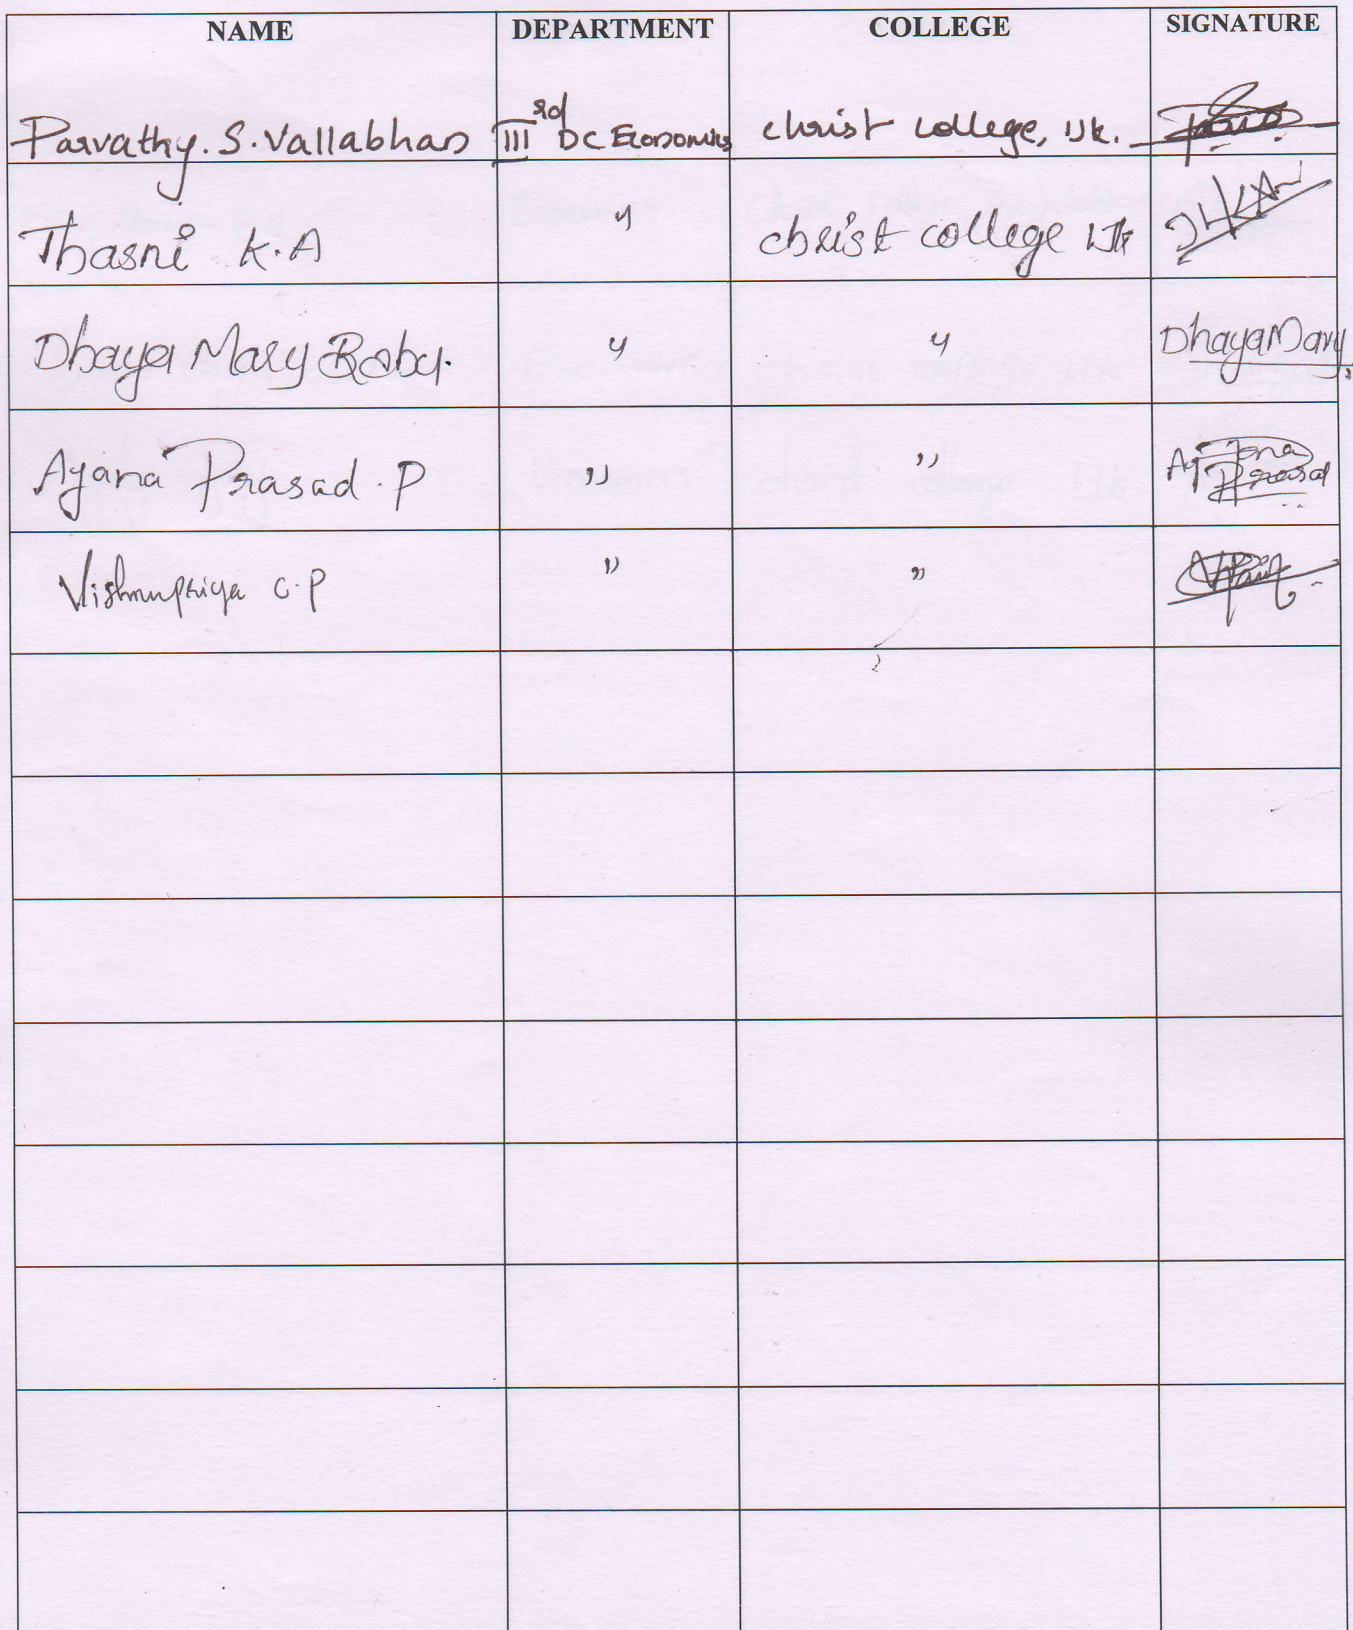 NAME DEPARTMENT COLLEGE SIGNATURE
Parvathy. S. Vallabhan III rd DC Economics christ college, IJK.
Thasni K.A " christ college IJK
Dhaya Mary Baby. " " Dhaya Mary
Ayana Prasad. P " " Ayana Prasad
Vishnupriya C.P " "